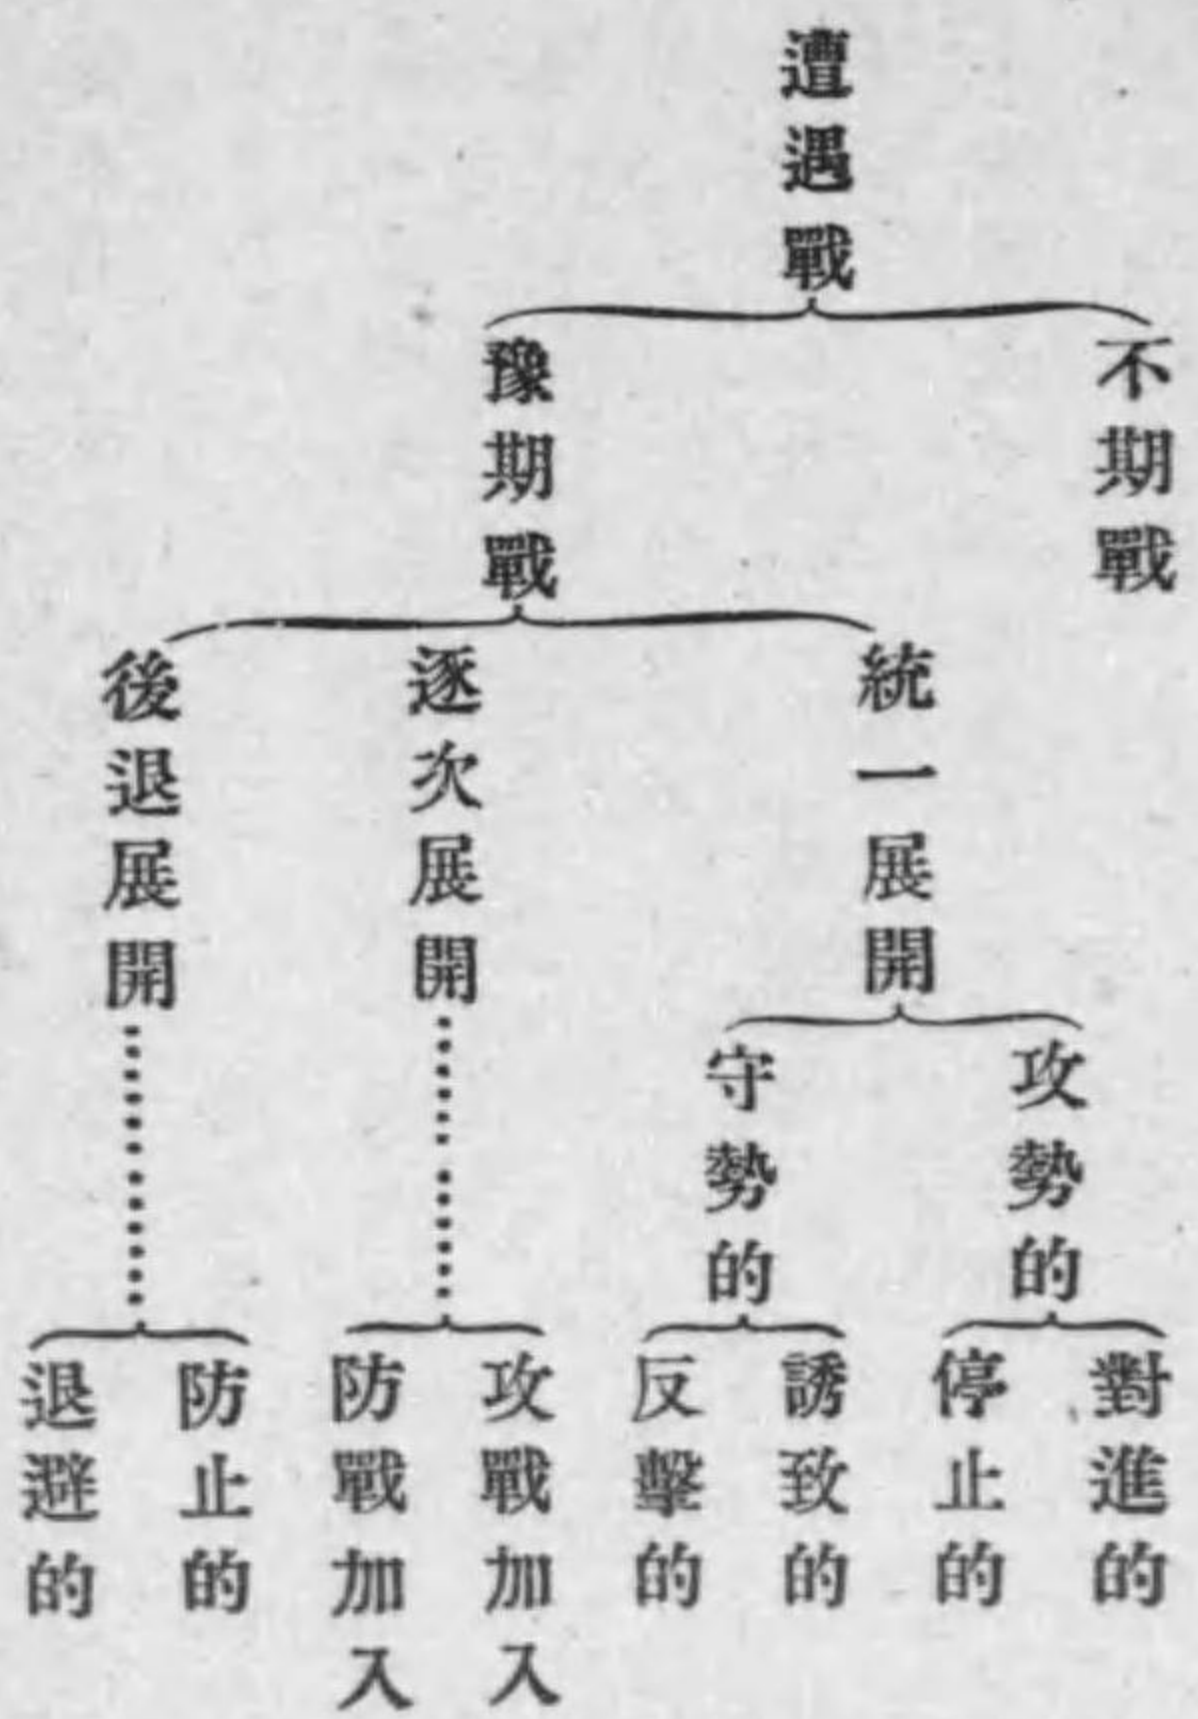 遭遇戰
不期戰
豫期戰
統一展開
攻勢的
對進的
停止的
守勢的
誘致的
反擊的
逐次展開
攻戰加入
防戰加入
後退展開
防止的
退避的